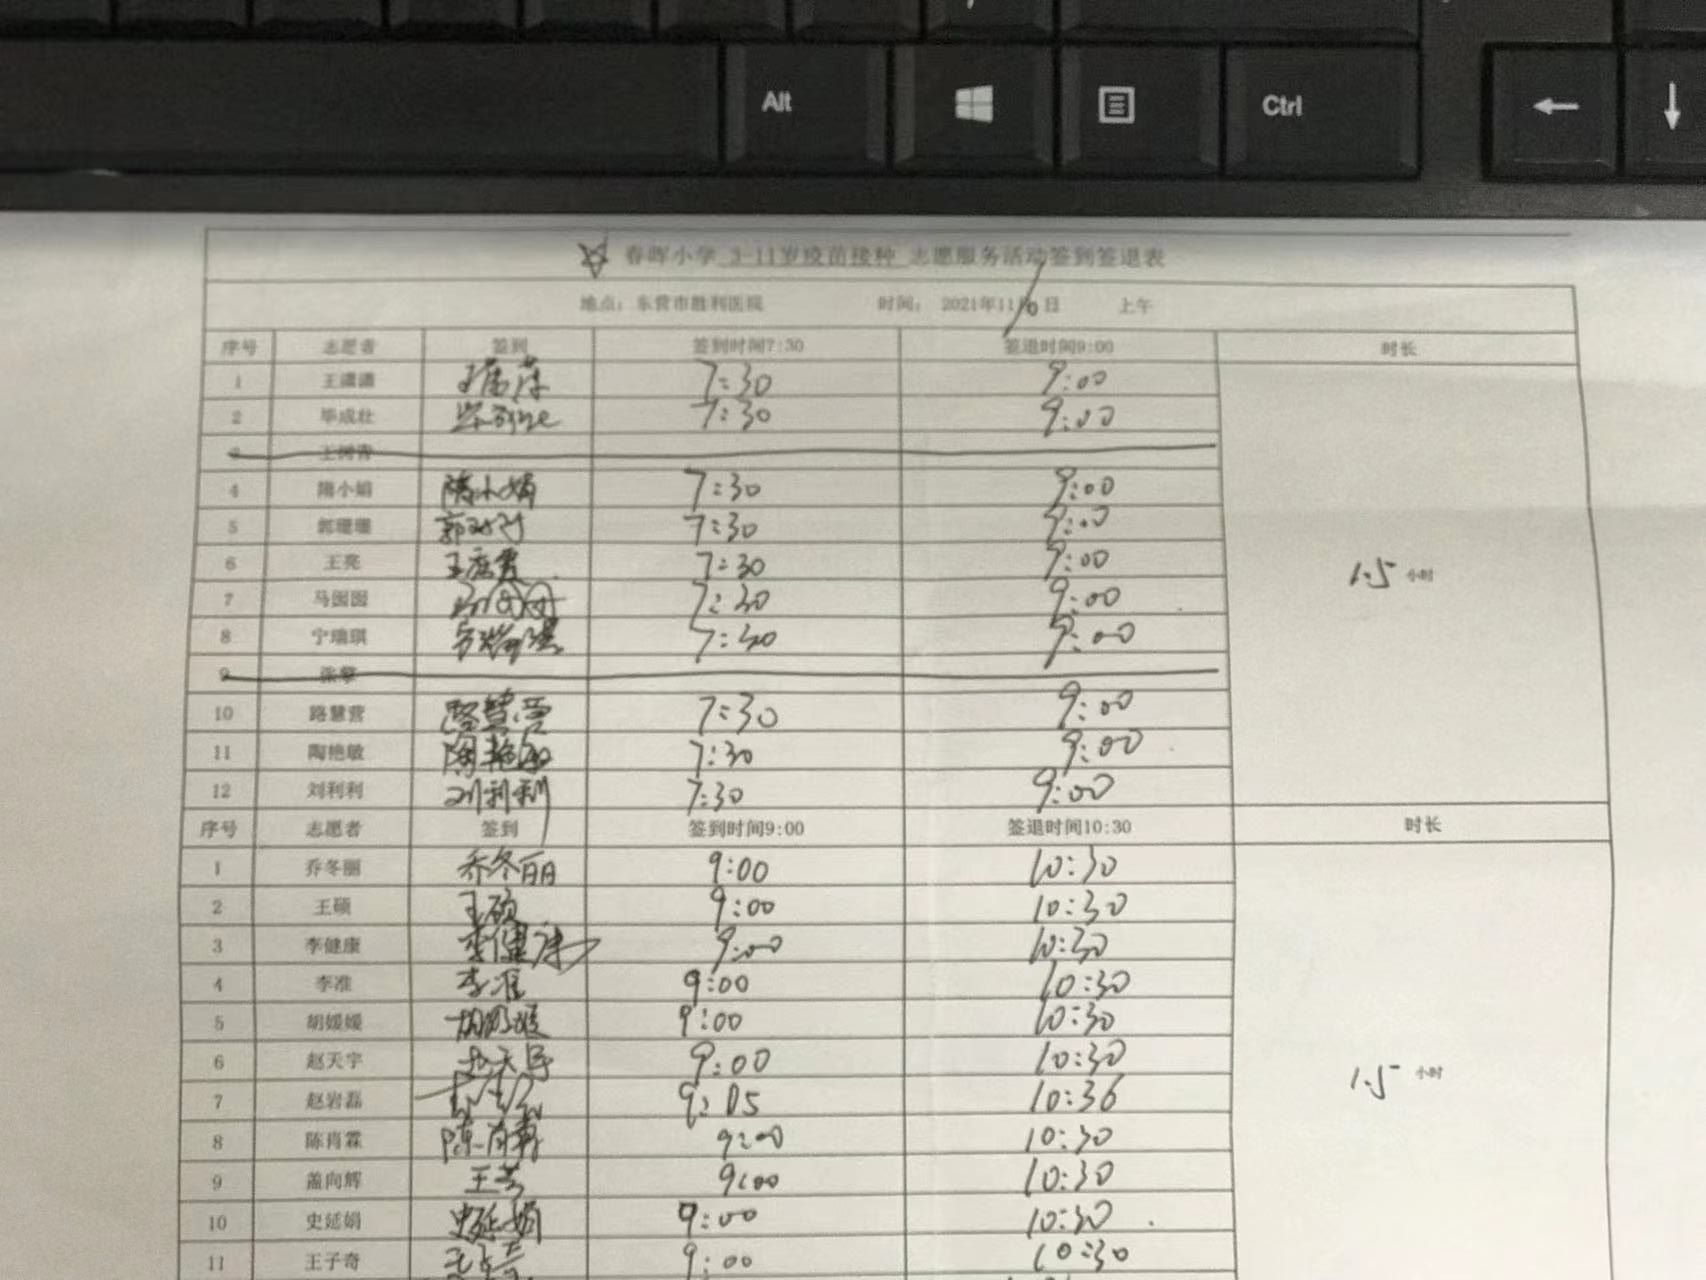 Alt
Ctrl
春晖小学 3-11岁疫苗接种 志愿服务活动签到签退表
地点：东营市胜利医院 时间： 2021年11 10日 上午
序号 志愿者 签到 签到时间7:30 签退时间9:00 时长
1 王潇潇 7:30 9:00
2 毕成壮 7:30 9:00
3 王树青
4 隋小娟 隋小娟 7:30 9:00
5 郭珊珊 郭 7:30 9:00
6 王亮 王 7:30 9:00
7 马囡囡 马囡囡 7:30 9:00
8 宁瑞琪 宁瑞琪 7:30 9:00
9 张攀
10 路慧营 路慧营 7:30 9:00
11 陶艳敏 陶艳敏 7:30 9:00
12 刘利利 刘利利 7:30 9:00
1.5 小时
序号 志愿者 签到 签到时间9:00 签退时间10:30 时长
1 乔冬丽 乔冬丽 9:00 10:30
2 王硕 王硕 9:00 10:30
3 李健康 李健康 9:00 10:30
4 李准 李准 9:00 10:30
5 胡媛媛 胡媛媛 9:00 10:30
6 赵天宇 赵天宇 9:00 10:30
7 赵岩磊 9:05 10:36
8 陈肖霖 陈肖霖 9:00 10:30
9 盖向辉 王芳 9:00 10:30
10 史延娟 史延娟 9:00 10:30
11 王子奇 王子奇 9:00 10:30
1.5 小时